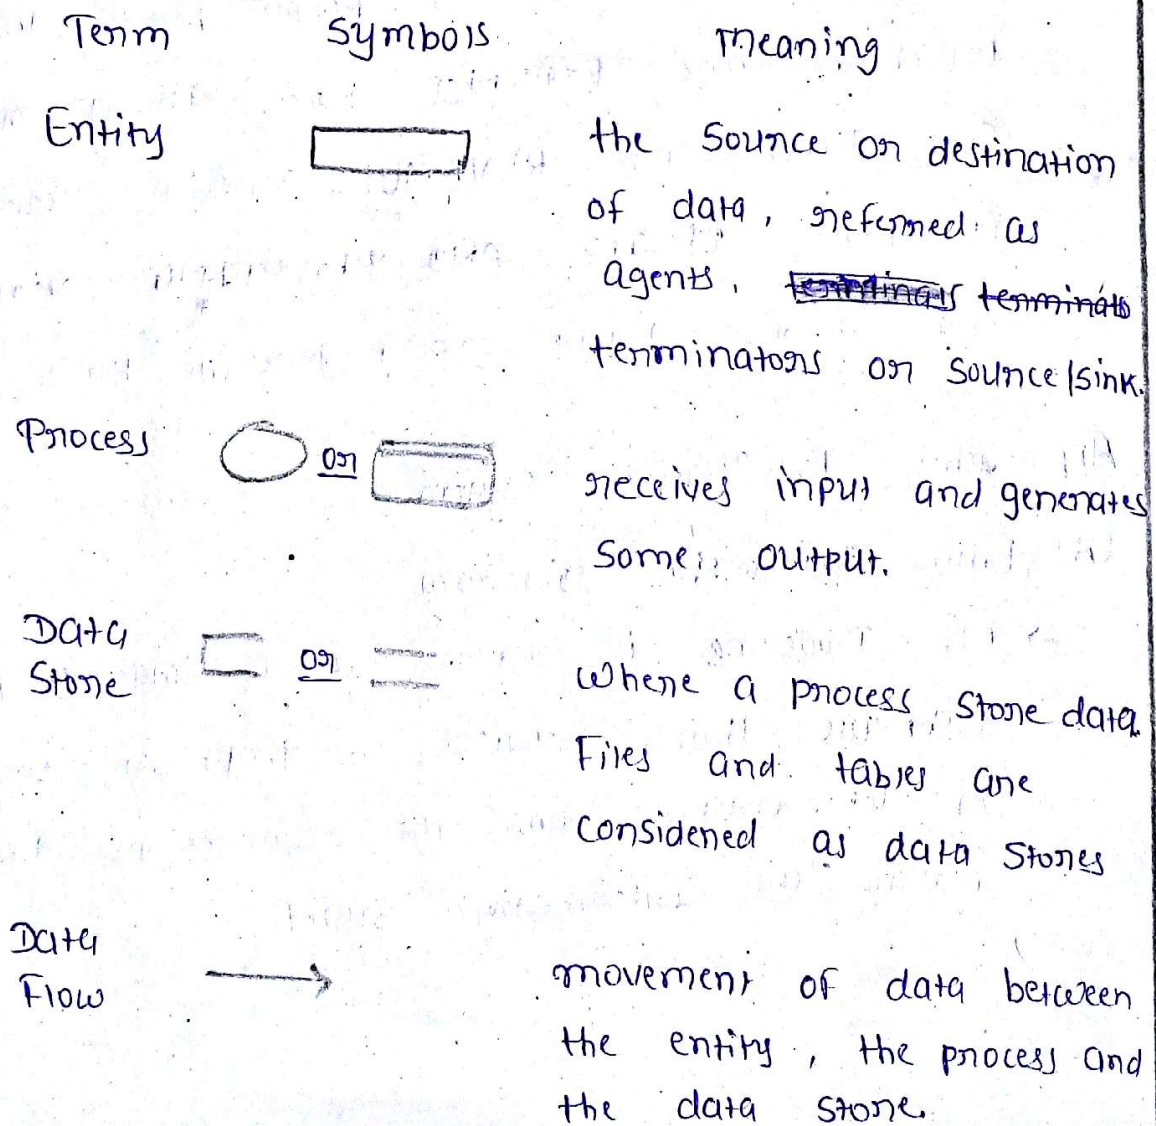 Term Symbols Meaning
Entity the source or destination
of data, referred as
agents,
terminators or source/sink.
Process or receives input and generates
some output.
Data
Store or where a process store data
Files and tables are
considered as data stores
Data
Flow movement of data between
the entity, the process and
the data store.